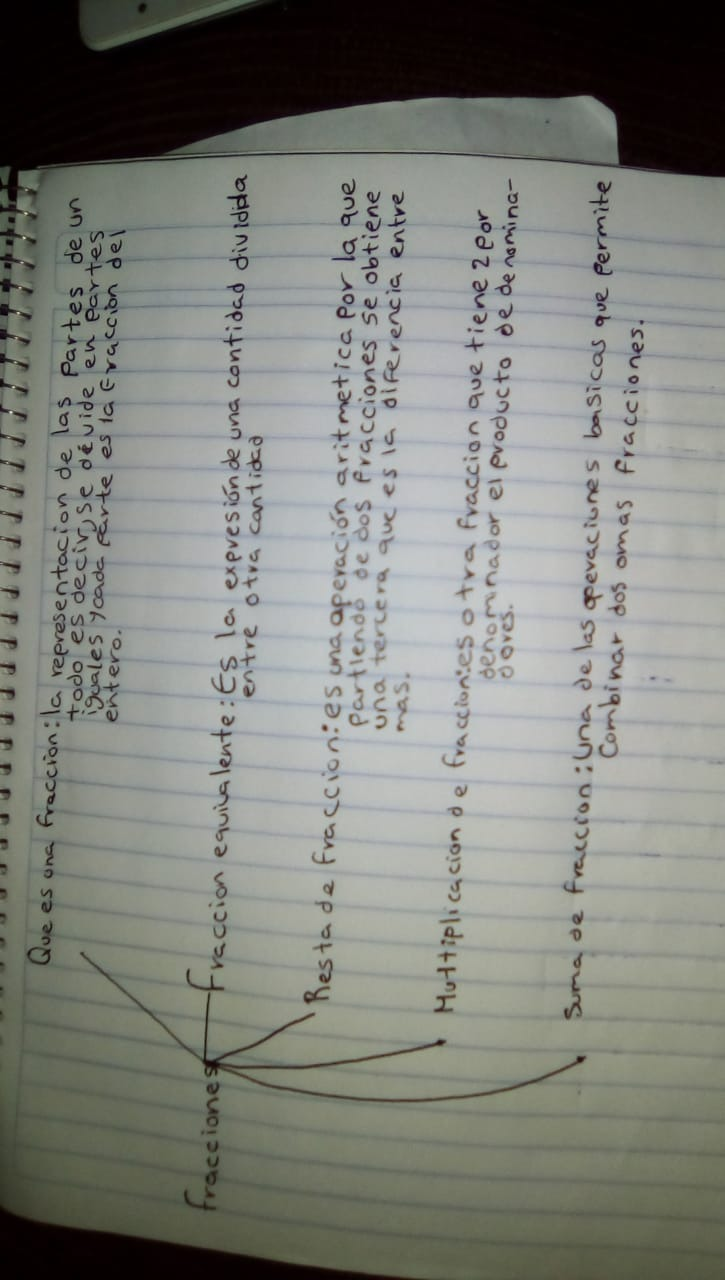 Que es una fraccion: la representacion de las partes de un
todo es decir, se dévide en partes
iguales y cada parte es la fraccion del
entero.
fracciones
fraccion equivalente: Es la expresión de una contidad dividida
entre otra cantidad
Resta de fraccion: es una operación aritmetica por la que
partiendo de dos fracciones se obtiene
una tercera que es la diferencia entre
mas.
Multiplicacion de fraccion: es otra fraccion que tiene 2 por
denominador el producto de denomina-
dores.
Suma de fraccion: una de las operaciones basicas que permite
Combinar dos o mas fracciones.